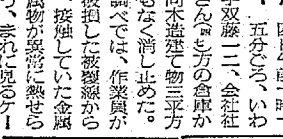 五分ごろ、いわ
字双藤一二、会社社
さん方の倉庫か
木造建て物三平方
もなく消し止めた。
調べでは、作業員が
破損した被覆線から
接触していた金属
属物が異常に熱せら
、まれに見るケー